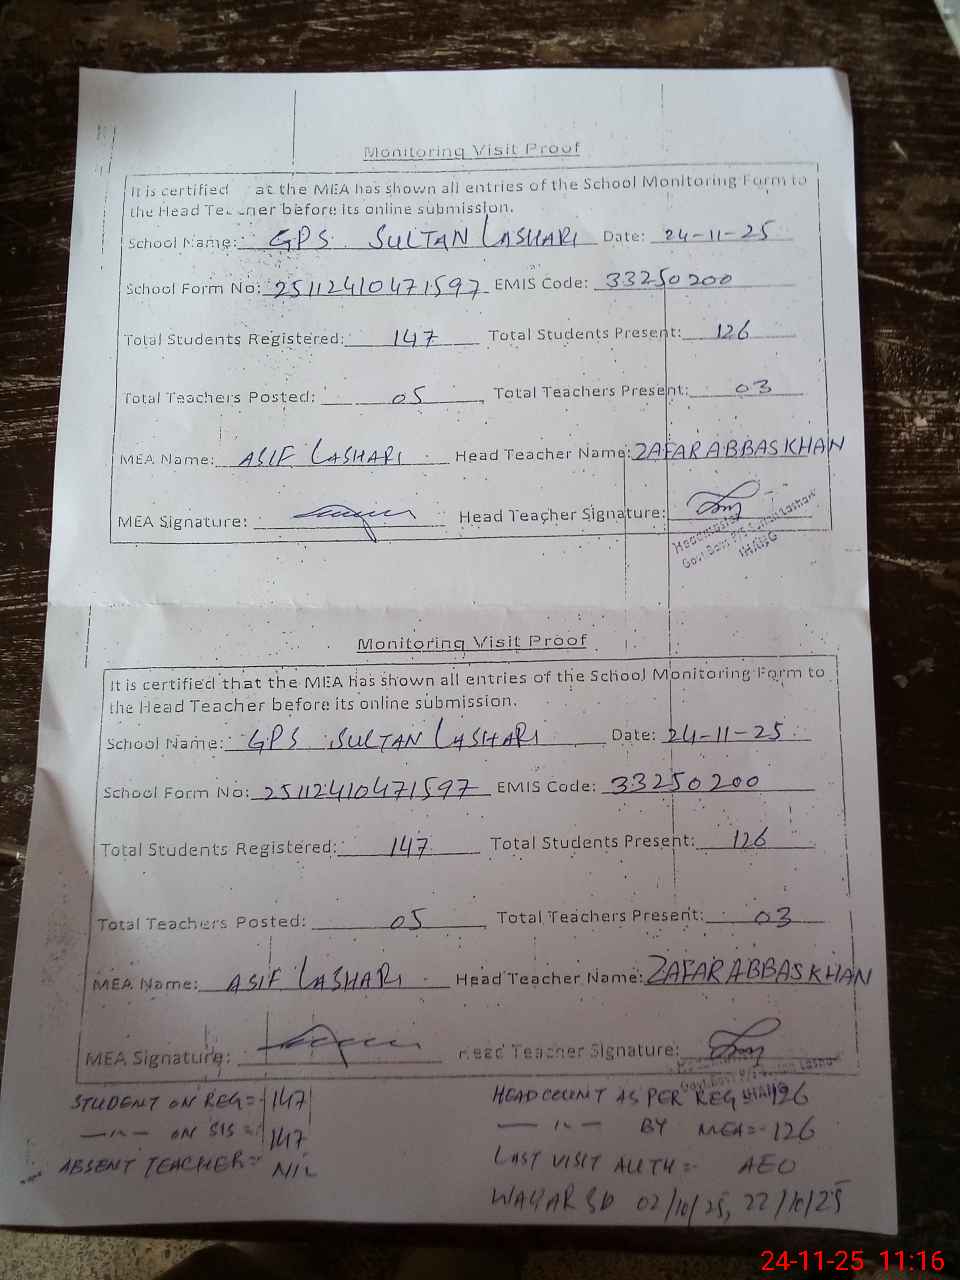 Monitoring Visit Proof
It is certified at the MEA has shown all entries of the School Monitoring Form to
the Head Teacher before its online submission.
School Name: GPS SULTAN LASHARI Date: 24-11-25
School Form No: 25112410471597 EMIS Code: 33250200
Total Students Registered: 147 Total Students Present: 126
Total Teachers Posted: 05 Total Teachers Present: 03
MEA Name: ASIF LASHARI Head Teacher Name: ZAFAR ABBAS KHAN
MEA Signature: Head Teacher Signature:
Headmaster
Govt. Boys P/S Sultan Lashari
JHANG
Monitoring Visit Proof
It is certified that the MEA has shown all entries of the School Monitoring Form to
the Head Teacher before its online submission.
School Name: GPS SULTAN LASHARI Date: 24-11-25
School Form No: 25112410471597 EMIS Code: 33250200
Total Students Registered: 147 Total Students Present: 126
Total Teachers Posted: 05 Total Teachers Present: 03
MEA Name: ASIF LASHARI Head Teacher Name: ZAFAR ABBAS KHAN
MEA Signature: Head Teacher Signature:
STUDENT ON REG = 147 HEADCOUNT AS PER REG 126
—"— ON SIS = 147 —"— BY MEA = 126
ABSENT TEACHER = NIL LAST VISIT AUTH = AEO
WAQAR SD 02/10/25, 22/10/25
24-11-25 11:16